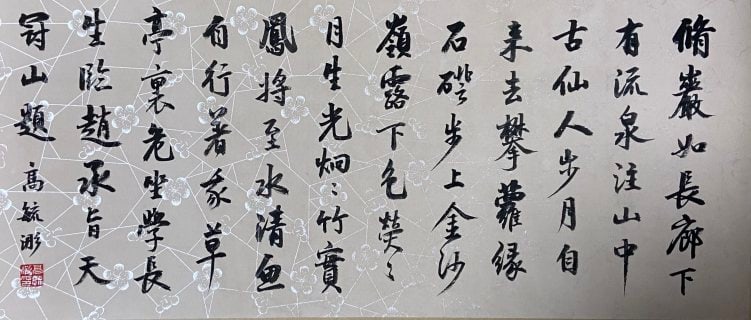 脩巖如長廊下
有流泉注山中
古仙人步月自
来去攀蘿緣
石磴步上金沙
嶺露下色熒〻
月生光炯〻竹實
鳳將至水清魚
自行著我草
亭裏危坐學長
生臨趙承旨天
冠山題 高毓浵